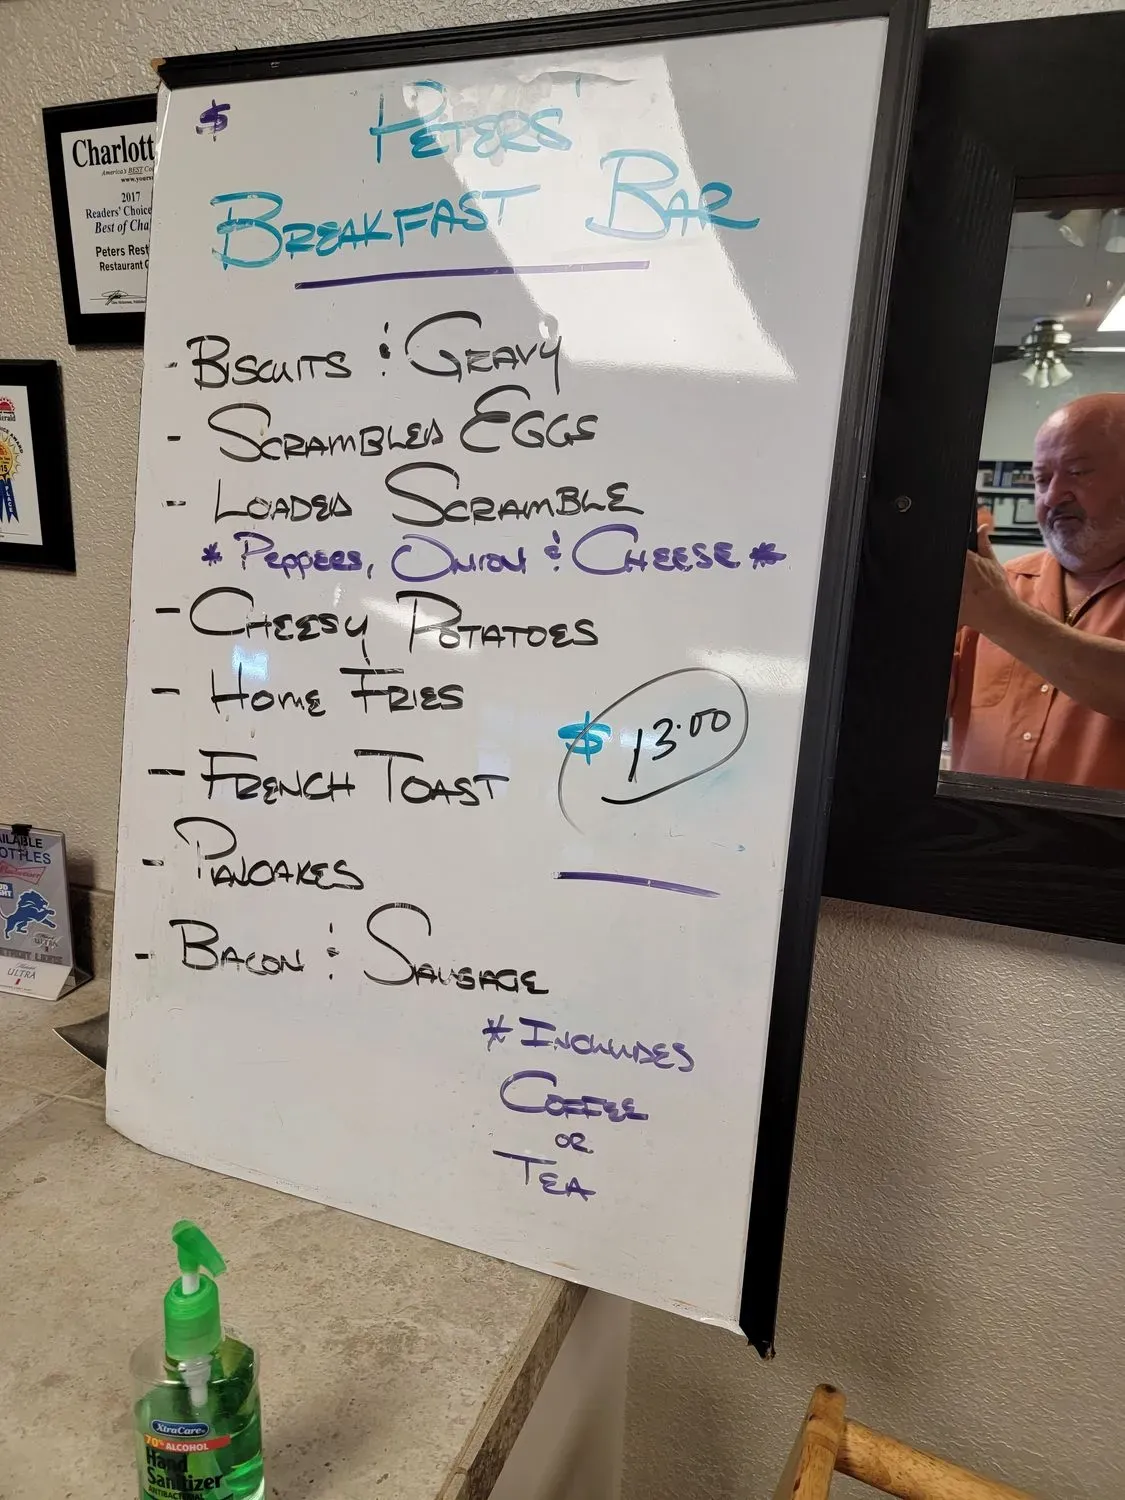 $
PETERS'
BREAKFAST BAR
- BISCUITS & GRAVY
- SCRAMBLED EGGS
- LOADED SCRAMBLE
* PEPPERS, ONION & CHEESE *
- CHEESY POTATOES
- HOME FRIES
$ 13.00
- FRENCH TOAST
- PANCAKES
- BACON & SAUSAGE
* INCLUDES
COFFEE
OR
TEA
Charlott
America's BEST Co
www.yoursu
2017
Readers' Choice
Best of Cha
Peters Rest
Restaurant
erald
15
PLACE
AILABLE
OTTLES
Budweiser
UD
GHT
ULTRA
DETROIT LIONS
ULTRA
XtraCare
70% ALCOHOL
Hand
Sanitizer
ANTIBACTERIAL